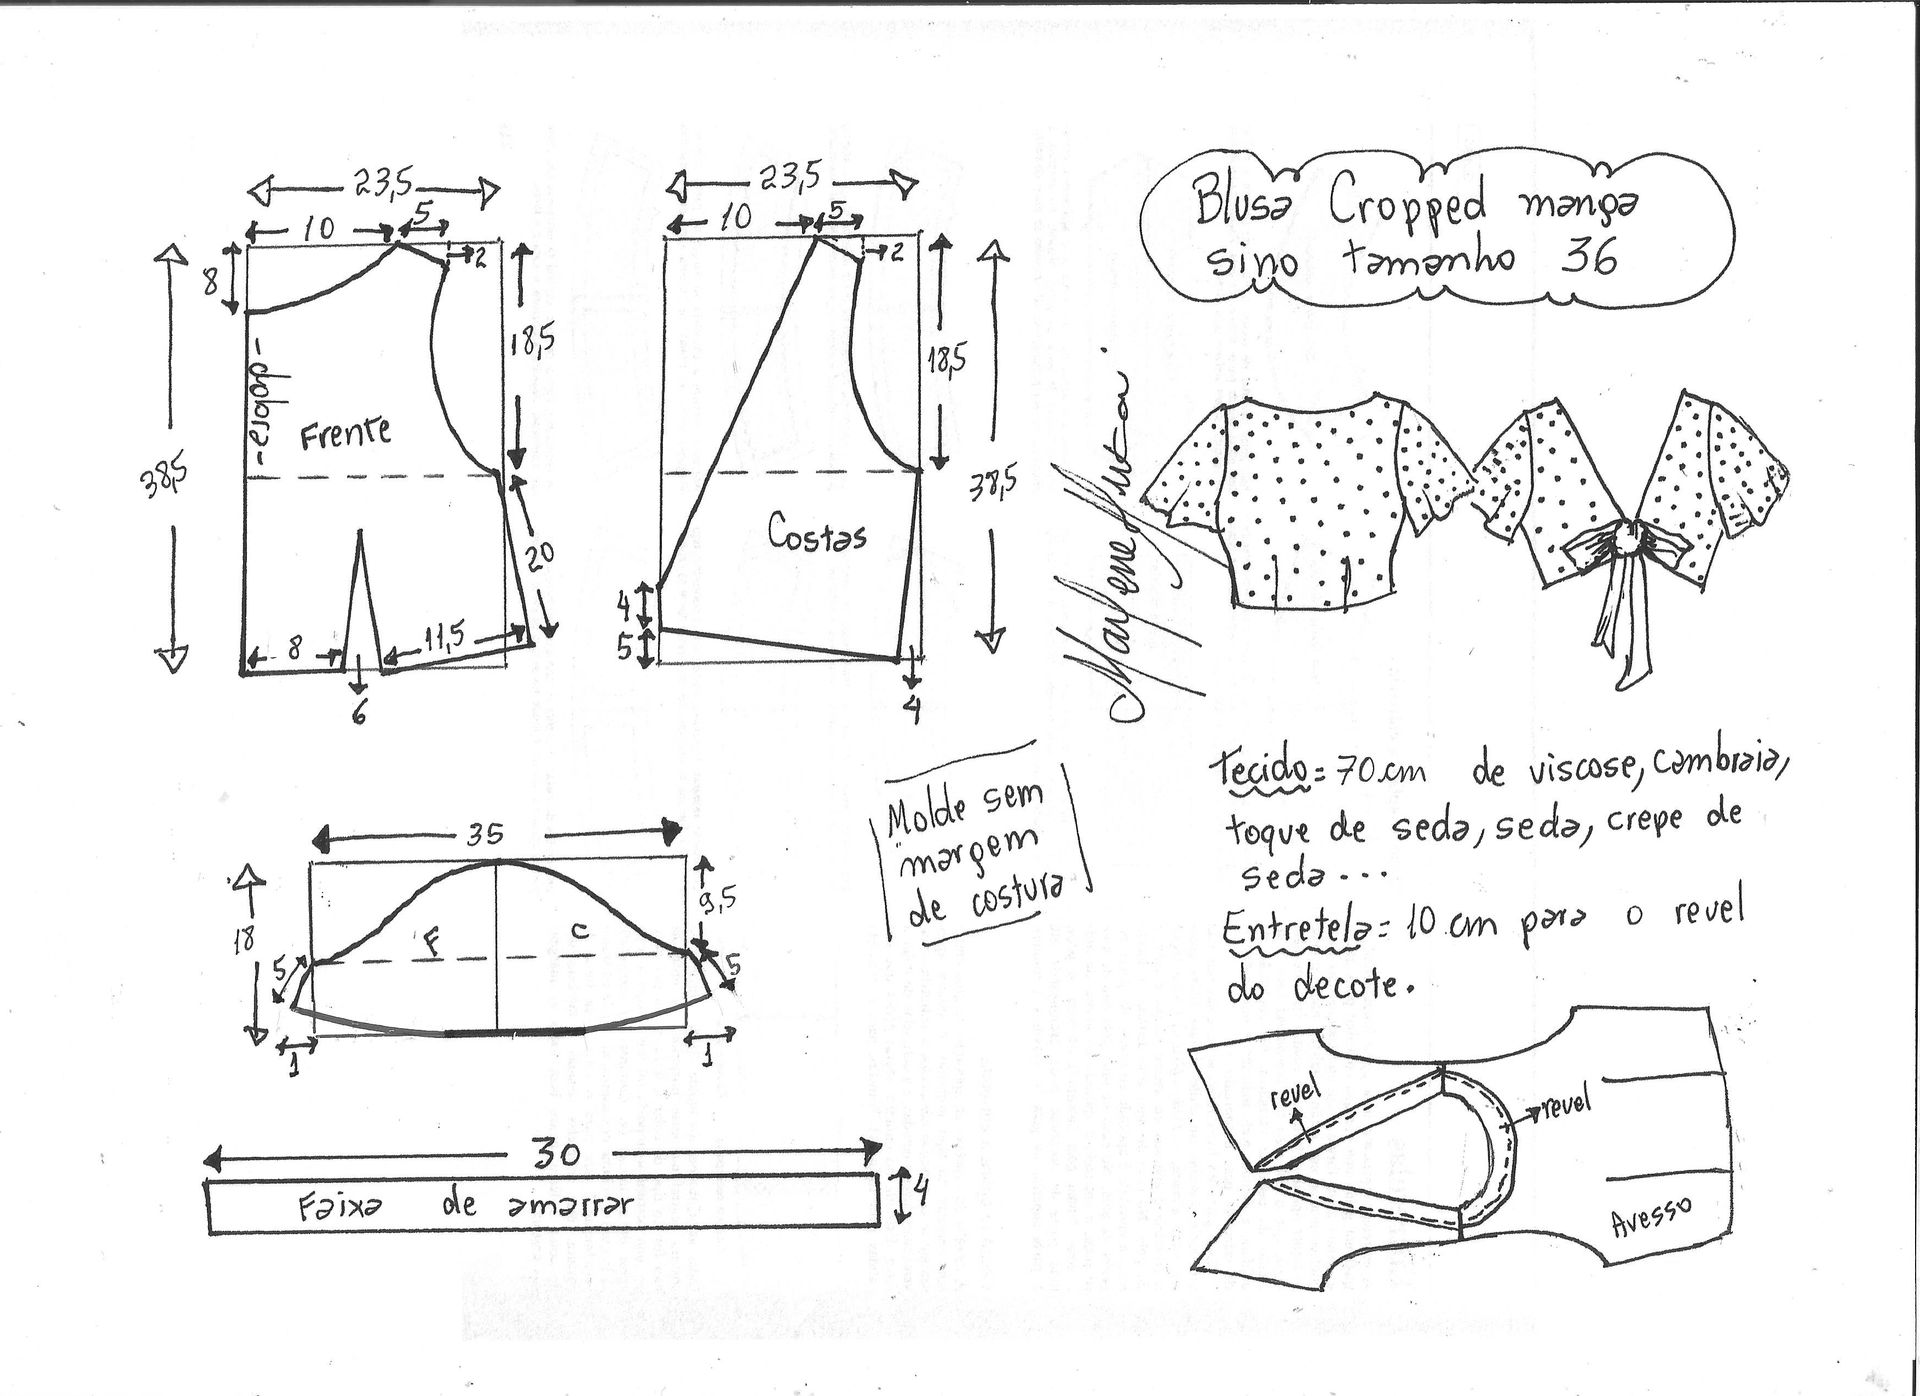 23,5
10
5
2
8
18,5
38,5
-dobra-
Frente
20
8
11,5
6
23,5
10
5
2
18,5
38,5
Costas
4
5
4
Blusa Cropped manga
sino tamanho 36
Marlene Mukai
35
18
9,5
F
C
5
5
1
1
Molde sem
margem
de costura
30
Faixa de amarrar
4
Tecido = 70 cm de viscose, cambraia,
toque de seda, seda, crepe de
seda...
Entretela = 10 cm para o revel
do decote.
revel
revel
Avesso